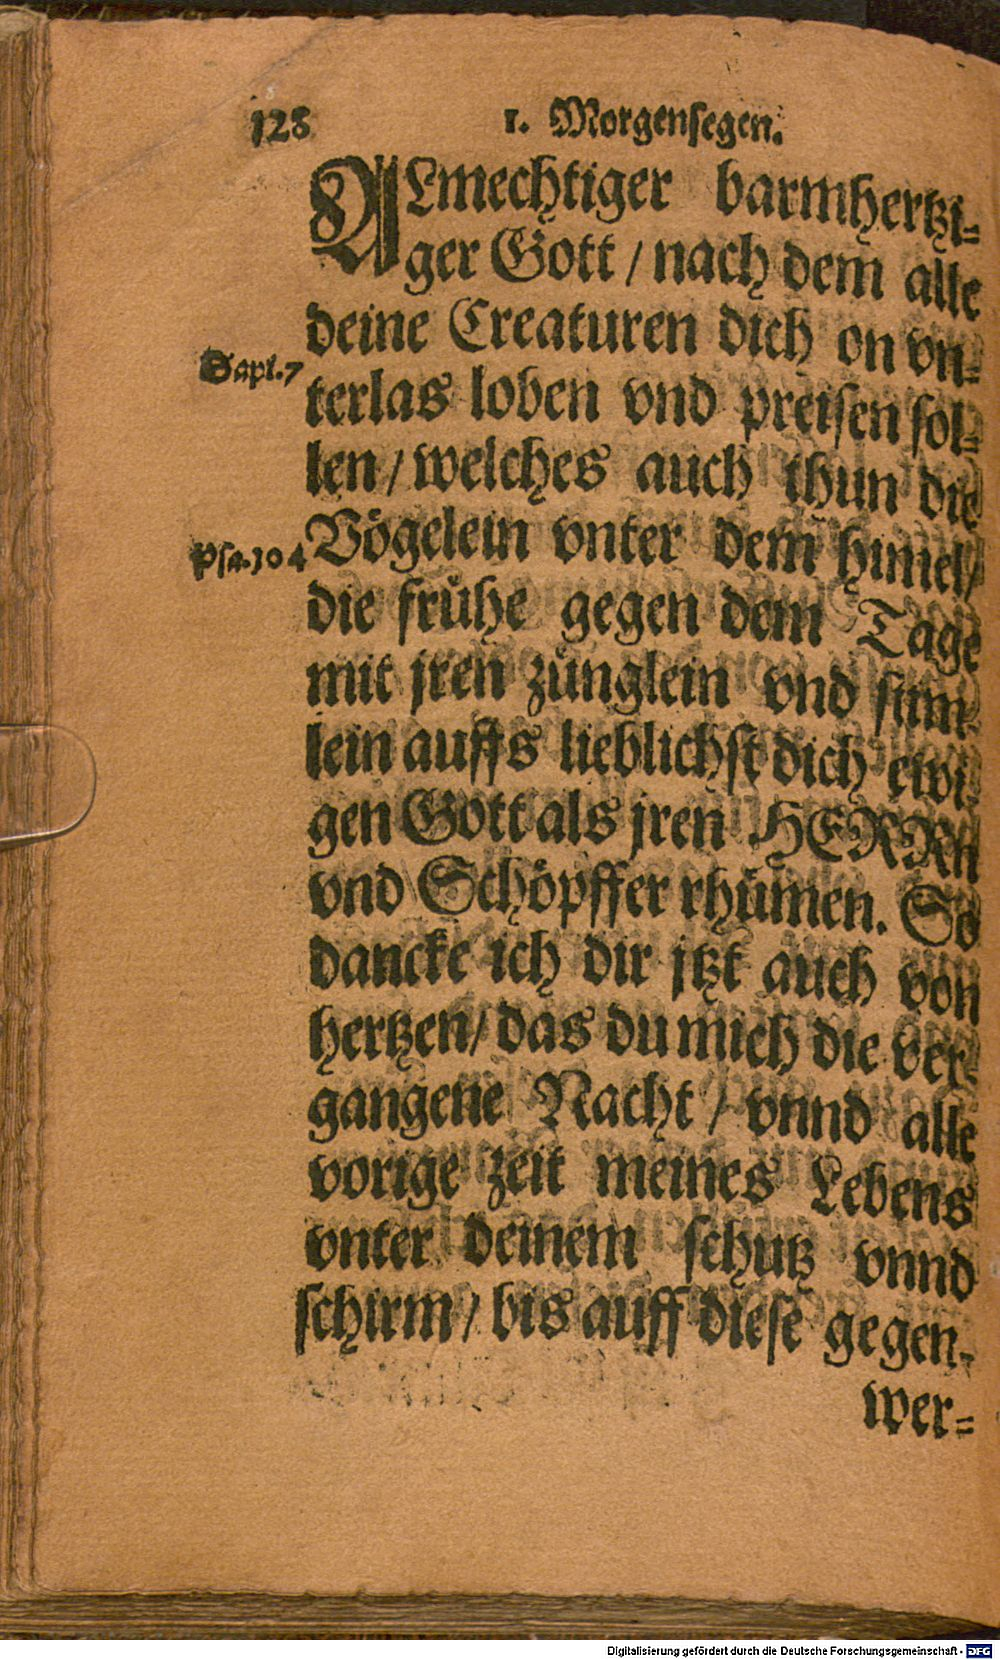 128 1. Morgensegen.
ALmechtiger barmhertzi-
ger Gott / nach dem alle
deine Creaturen dich on vn-
Sapi.7
terlas loben vnd preisen sol-
len / welches auch thun die
Psa.104
Vögelein vnter dem himel /
die frühe gegen dem Tage
mit jren zünglein vnd stim-
lein auffs lieblichst dich ewi-
gen Gott als jren HERRn
vnd Schöpffer rhümen. So
dancke ich dir jtzt auch von
hertzen / das du mich die ver-
gangene Nacht / vnnd alle
vorige zeit meines Lebens
vnter deinem schutz vnnd
schirm / bis auff diese gegen-
wer-
Digitalisierung gefördert durch die Deutsche Forschungsgemeinschaft - DFG